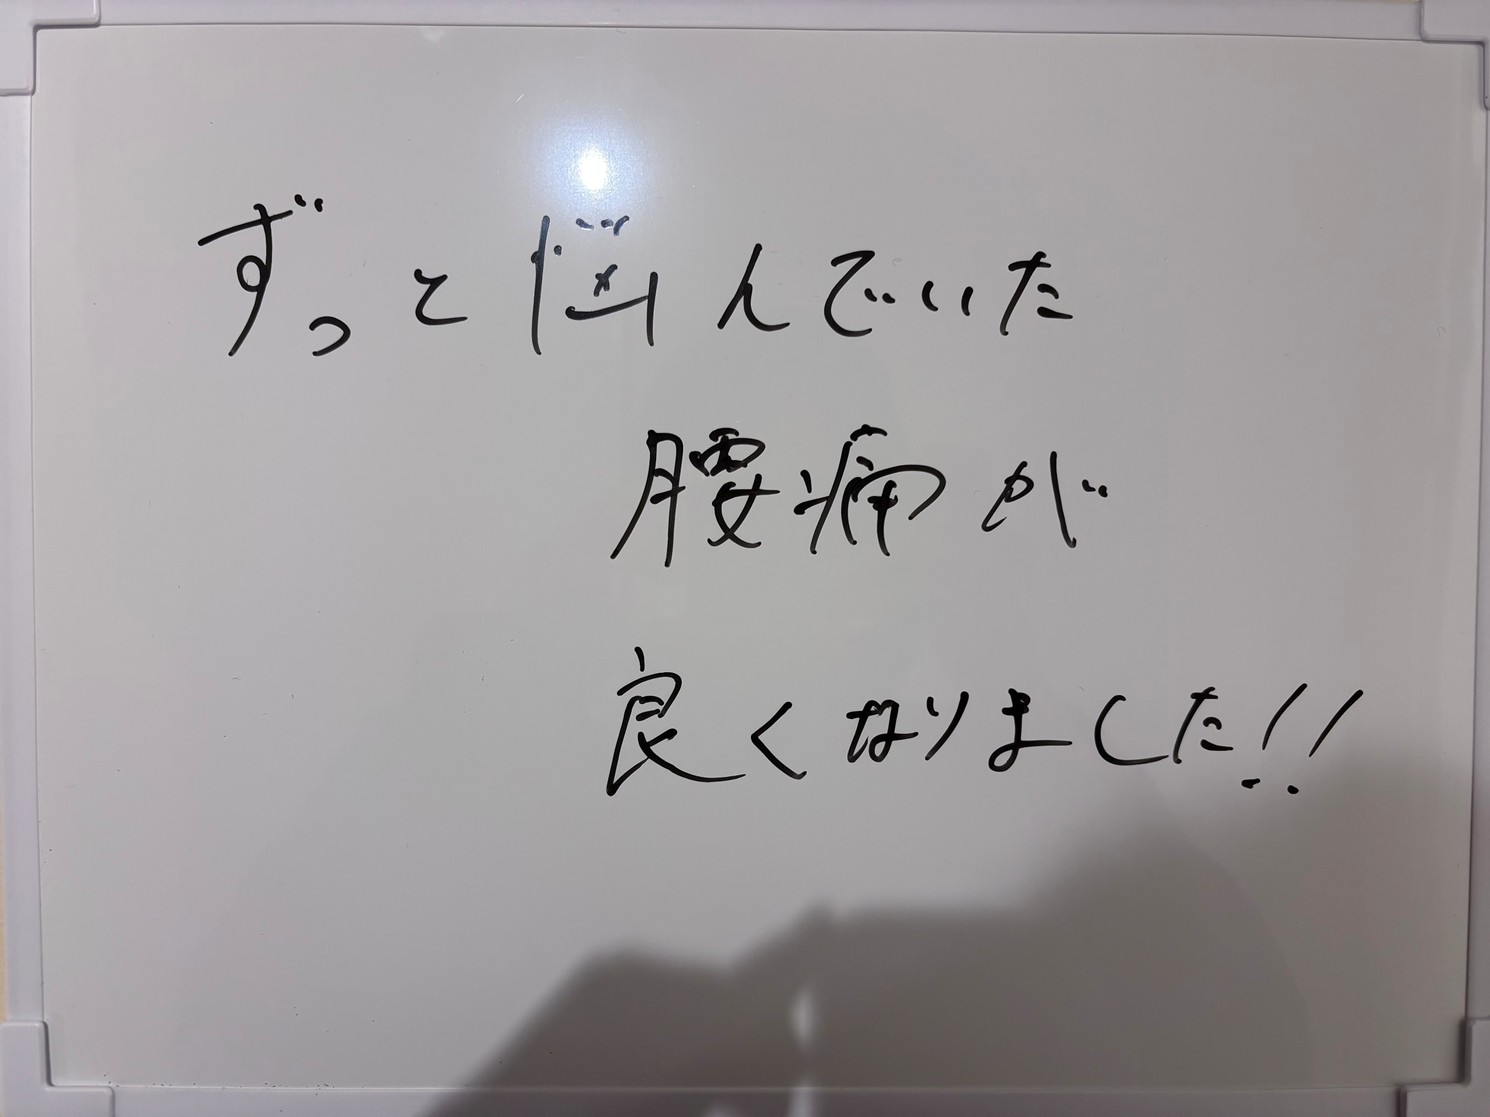 ずっと悩んでいた
腰痛が
良くなりました!!